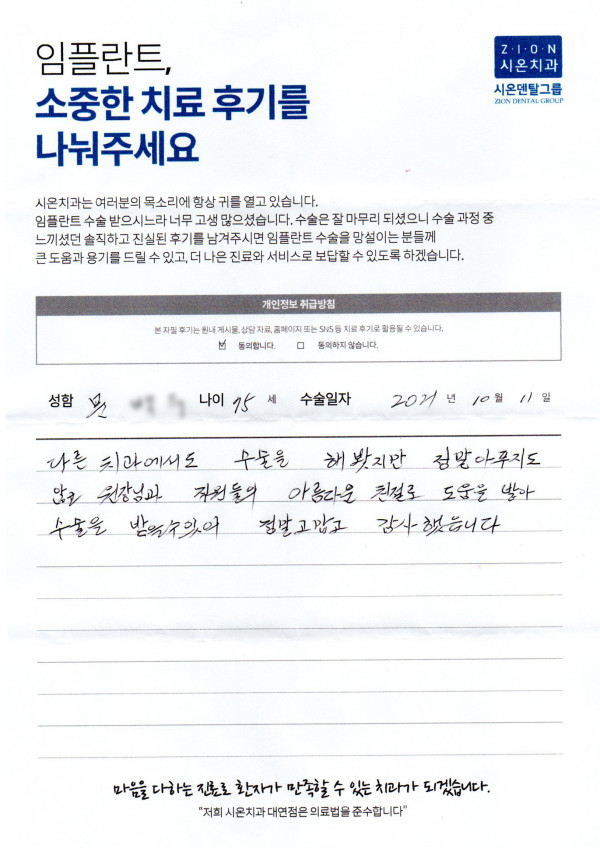 임플란트,
소중한 치료 후기를
나눠주세요
Z·I·O·N
시온치과
시온덴탈그룹
ZION DENTAL GROUP
시온치과는 여러분의 목소리에 항상 귀를 열고 있습니다.
임플란트 수술 받으시느라 너무 고생 많으셨습니다. 수술은 잘 마무리 되셨으니 수술 과정 중
느끼셨던 솔직하고 진실된 후기를 남겨주시면 임플란트 수술을 망설이는 분들께
큰 도움과 용기를 드릴 수 있고, 더 나은 진료와 서비스로 보답할 수 있도록 하겠습니다.
개인정보 취급방침
본 자필 후기는 원내 게시물, 상담 자료, 홈페이지 또는 SNS 등 치료 후기로 활용될 수 있습니다.
☑ 동의합니다. □ 동의하지 않습니다.
성함 문 나이 75 세 수술일자 2021 년 10 월 11 일
다른 치과에서도 수술을 해봤지만 정말아푸지도
않고 원장님과 직원들의 아름다운 친절로 도움을 받아
수술을 받을수있어 정말고맙고 감사했습니다
마음을 다하는 진료로 환자가 만족할 수 있는 치과가 되겠습니다.
"저희 시온치과 대연점은 의료법을 준수합니다"